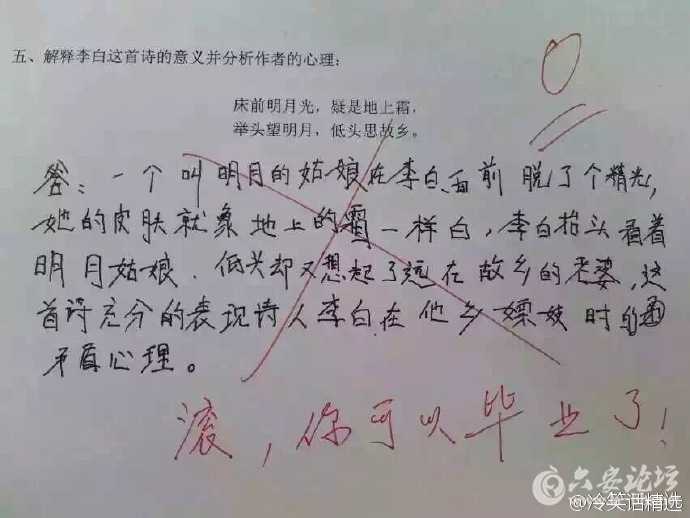 五、解释李白这首诗的意义并分析作者的心理：
0
床前明月光，疑是地上霜，
举头望明月，低头思故乡。
答：一个叫明月的姑娘在李白面前脱了个精光，
她的皮肤就象地上的霜一样白，李白抬头看着
明月姑娘．低头却又想起了远在故乡的老婆，这
首诗充分的表现诗人李白在他乡嫖妓时的
矛盾心理。
滚，你可以毕业了！
六安论坛
@冷笑话精选